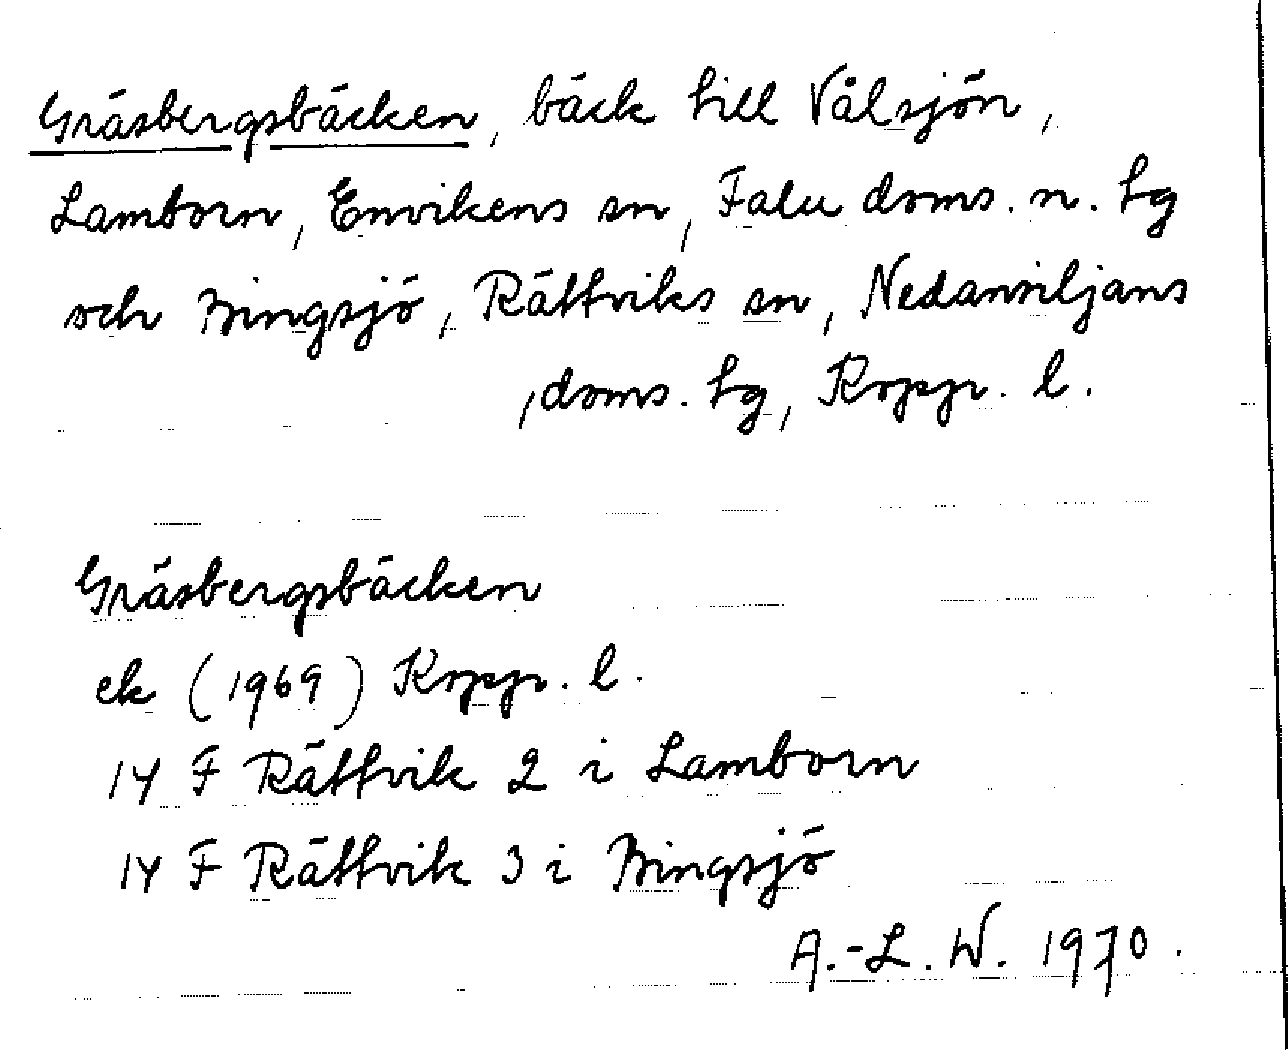 Gräsbergsbäcken, bäck till Vålsjön,
Lamborn, Envikens sn, Falu doms. n. tg
och Bingsjö, Rättviks sn, Nedansiljans
doms. tg, Kopp. l.
Gräsbergsbäcken
ek (1969) Kopp. l.
14 F Rättvik 2 i Lamborn
14 F Rättvik 3 i Bingsjö
A.-L. W. 1970.